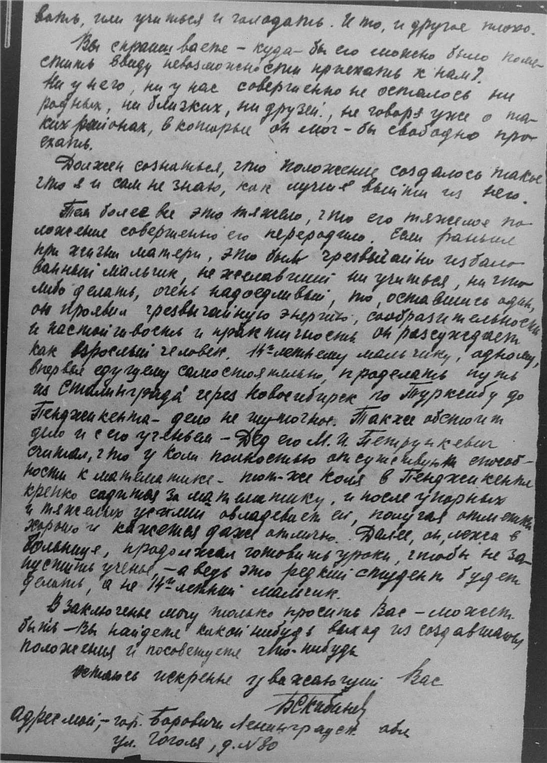 вать, или учиться и голодать. И то, и другое плохо.
Вы спрашиваете - куда-бы его можно было поме-
стить ввиду невозможности приехать к нам?.
Ни у него, ни у нас совершенно не осталось ни
родных, ни близких, ни друзей, не говоря уже о та-
ких районах, в которые он мог-бы свободно прое-
хать.
Должен сознаться, что положение создалось такое
что я и сам не знаю, как лучше выйти из него.
Тем более все это тяжело, что его тяжелое по-
ложение совершенно его переродило. Если раньше
при жизни матери, это был чрезвычайно избало-
ванный мальчик, не желавший ни учиться, ни что
либо делать, очень надоедливый, то, оставшись один,
он проявил чрезвычайную энергию, сообразительность
и настойчивость и практичность он рассуждает
как взрослый человек. 14-летнему мальчику, одному,
впервые едущему самостоятельно, проделать путь
из Сталинграда через Новосибирск по Турксибу до
Пенджикента - дело не шуточное. Также обстоит
дело и с его ученьем - Дед его М. И. Петрункевич
считал, что у Коли полностью отсутствуют способ-
ности к математике - тот-же Коля в Пенджикенте
крепко садится за математику, и после упорных
и тяжелых усилий овладевает ей, получая отметки
хорошо и кажется даже отлично. Далее, он, лежа в
больнице, продолжал готовить уроки, чтобы не за-
пустить ученье - а ведь это редкий студент будет
делать, а не 14-летний мальчик.
В заключенье могу только просить Вас - может
быть - Вы найдете какой нибудь выход из создавшегося
положения и посоветуете что-нибудь
Остаюсь искренне уважающий Вас
Адрес мой, - гор. Боровичи Ленинградск. обл
ул. Гоголя, д. № 80